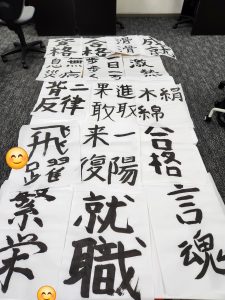 合格
合格
無病
息災
二律
背反
進取
果敢
絹
木綿
飛躍
一陽
来復
合格
繁栄
就職
言魂